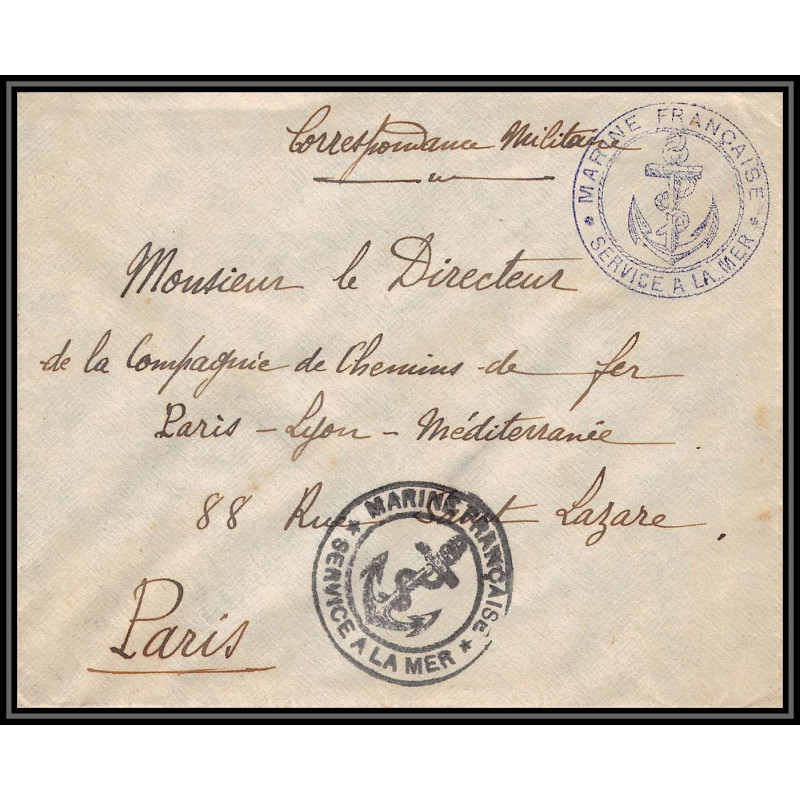 Correspondance Militaire
* MARINE FRANÇAISE *
SERVICE A LA MER
Monsieur le Directeur
de la Compagnie de Chemins de fer
Paris - Lyon - Méditerranée
88 Rue Saint Lazare.
* MARINE FRANÇAISE *
SERVICE A LA MER
Paris